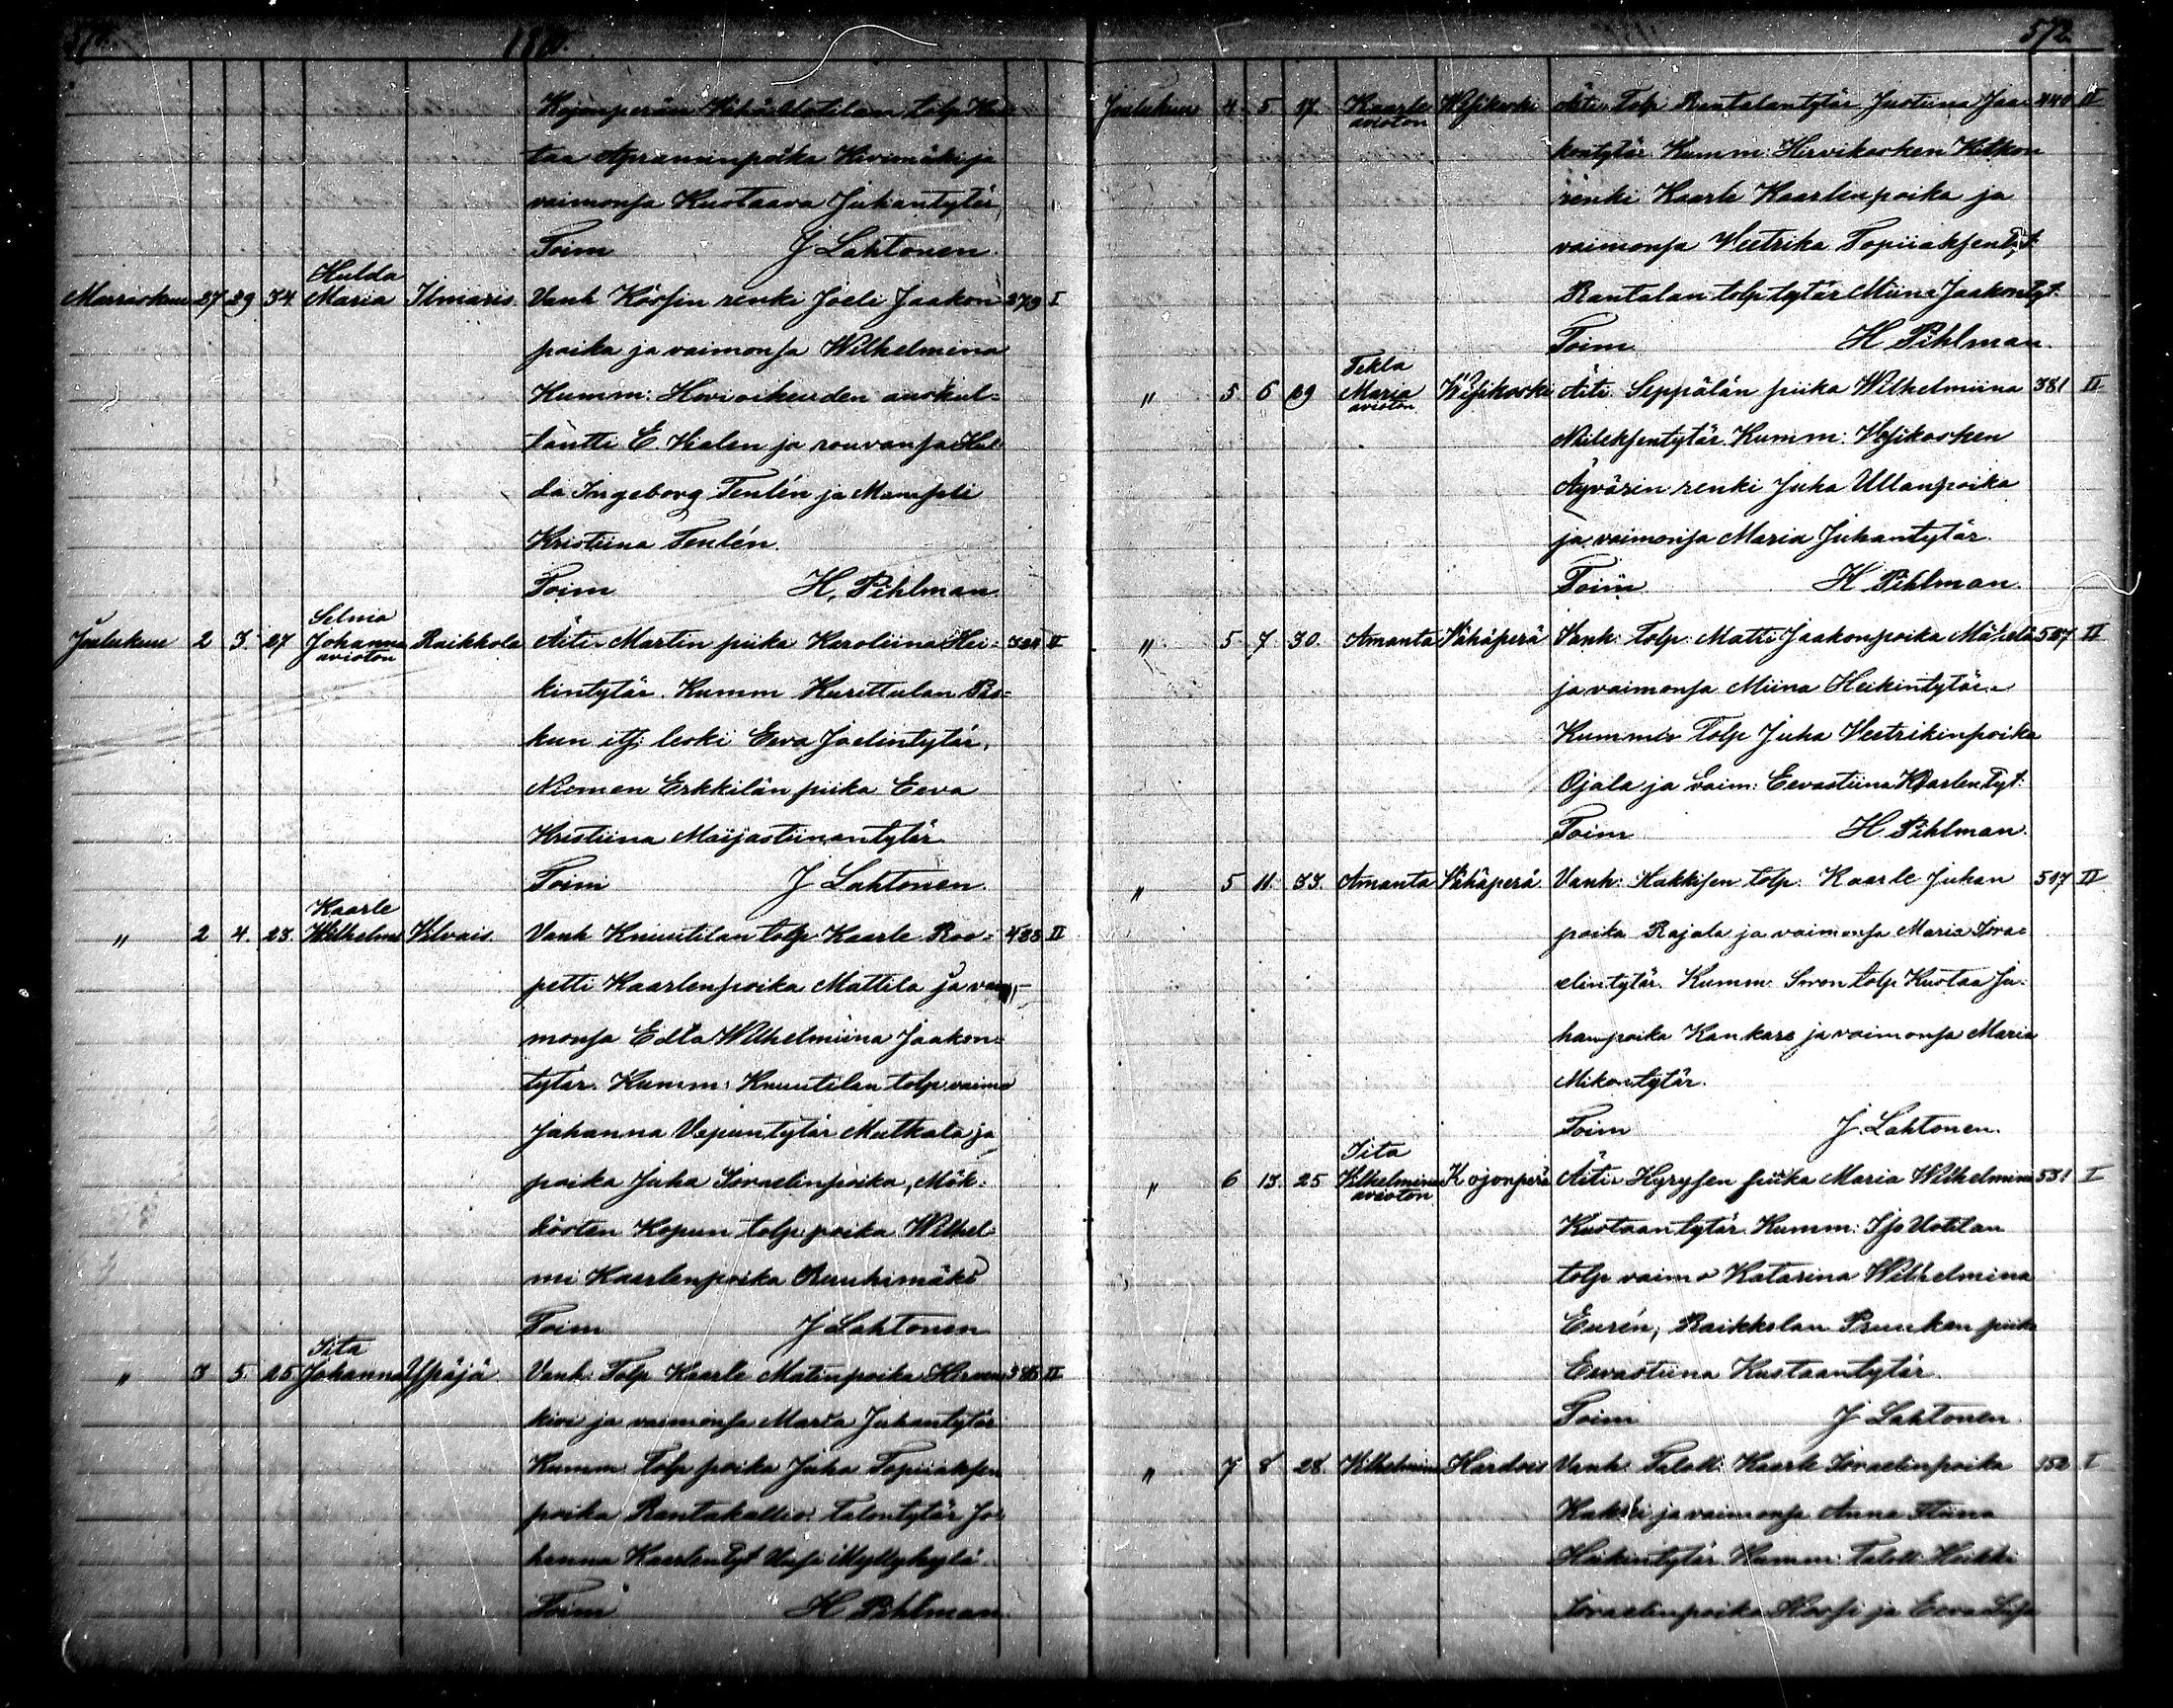 Kojonperän Vähä Uotilan tolp Kus
taa Apraminpoika Kivimäki ja
vaimonsa Kustaava Juhantytär,
Toim J Lahtonen.
Hulda
Marraskuu 27 29 34 Maria Ilmaris Vanh Körsin renki Joeli Jaakon 279 I
poika ja vaimonsa Wilhelmina
Kumm: Hovioikeuden auskul=
tantti E. ja rouvansa Hul
da Ingeborg Tenlén ja Mamseli
Kristiina Tenlén.
Toim H. Pihlman
Selma
Joulukuu 2 3. 27 Johanna Raikkola Äiti Martin piika Karoliina Hei= II
avioton
kintytär. Kumm Kurittulan
kun itj. leski Eeva Joelintytär,
Niemen Erkkilän piika Eeva
Kristiina Maijastiinantytär
Toim J Lahtonen.
Kaarle
" 2 4. 23. Wilhelmi Vilvais. Vanh Knuutilan tolp Kaarle Roo= 488 II
petti Kaarlenpoika Mattila ja vai
monsa Edla Wilhelmiina Jaakon=
tytär. Kumm: Knuutilan tolp. vaimo
Johanna Vapuntytär Mutkala ja
poika Juha Israelinpoika, Mäk=
kösten Kopun tolp. poika Wilhel
mi Kaarlenpoika Ruuhimäki
Toim J Lahtonen
Iita
" 3 5. 25 Johanna Ypäjä Vanh: Tolp Kaarle Matinpoika Hirven II
kivi ja vaimonsa Maria Juhantytär
Kumm: Tolp poika Juha Topiiaksen
poika Rantakallio. Talontytär Jo
hanna Kaarlentyt Uusi Myllykylä.
Toim H Pihlman
572.
Joulukuu 4 5 17. Kaarle Wesikoski Äiti Tolp Rantalantytär Justiina Jaa= 440 II
avioton
kontytär Kumm: Hirvikosken
renki Kaarle Kaarlenpoika ja
vaimonsa Veetrika Topiiaksentyt.
Rantalan tolp tytär Miina Jaakontyt.
Toim H Pihlman.
Tekla
" 5 6 29 Maria Wesikoski Äiti Seppälän piika Wilhelmiina 381 II
avioton
Niileksentytär. Kumm: Vesikosken
Äyvärin renki Juha Ullanpoika
ja vaimonsa Maria Juhantytär.
Toim H Pihlman.
" 5 7 30. Amanta Vähäperä Vanh: Tolp: Matti Jaakonpoika Mäkelä 507 II
ja vaimonsa Miina Heikintytär.
Kummit Tolp Juha Veetrikinpoika
Ojala ja vaim: Eevastiina Kaarlentyt.
Toim H Pihlman.
" 5 11. 33. Amanta Vähäperä Vanh: Kakkisen tolp. Kaarle Juhan 517 II
poika Rajala ja vaimonsa Maria Isra=
elintytär. Kumm. tolp Kustaa Ju=
hanpoika Kankare ja vaimonsa Maria
Mikontytär.
Toim J. Lahtonen.
Iita
" 6 13. 25 Wilhelmina Kojonperä Äiti Hyrysen piika Maria Wilhelmina 531 I
avioton
Kustaantytär. Kumm: Iso Uotilan
tolp vaimo Katarina Wilhelmina
Eurén, Raikkolan Prunkan piika
Eevastiina Kustaantytär.
Toim J Lahtonen.
" 7 8 28. Wilhelmina Kardois Vanh: Talok Kaarle Israelinpoika 152 I
ja vaimonsa Anna Stiina
Heikintytär Kumm: Talok Heikki
Israelinpoika ja Eeva Liisa